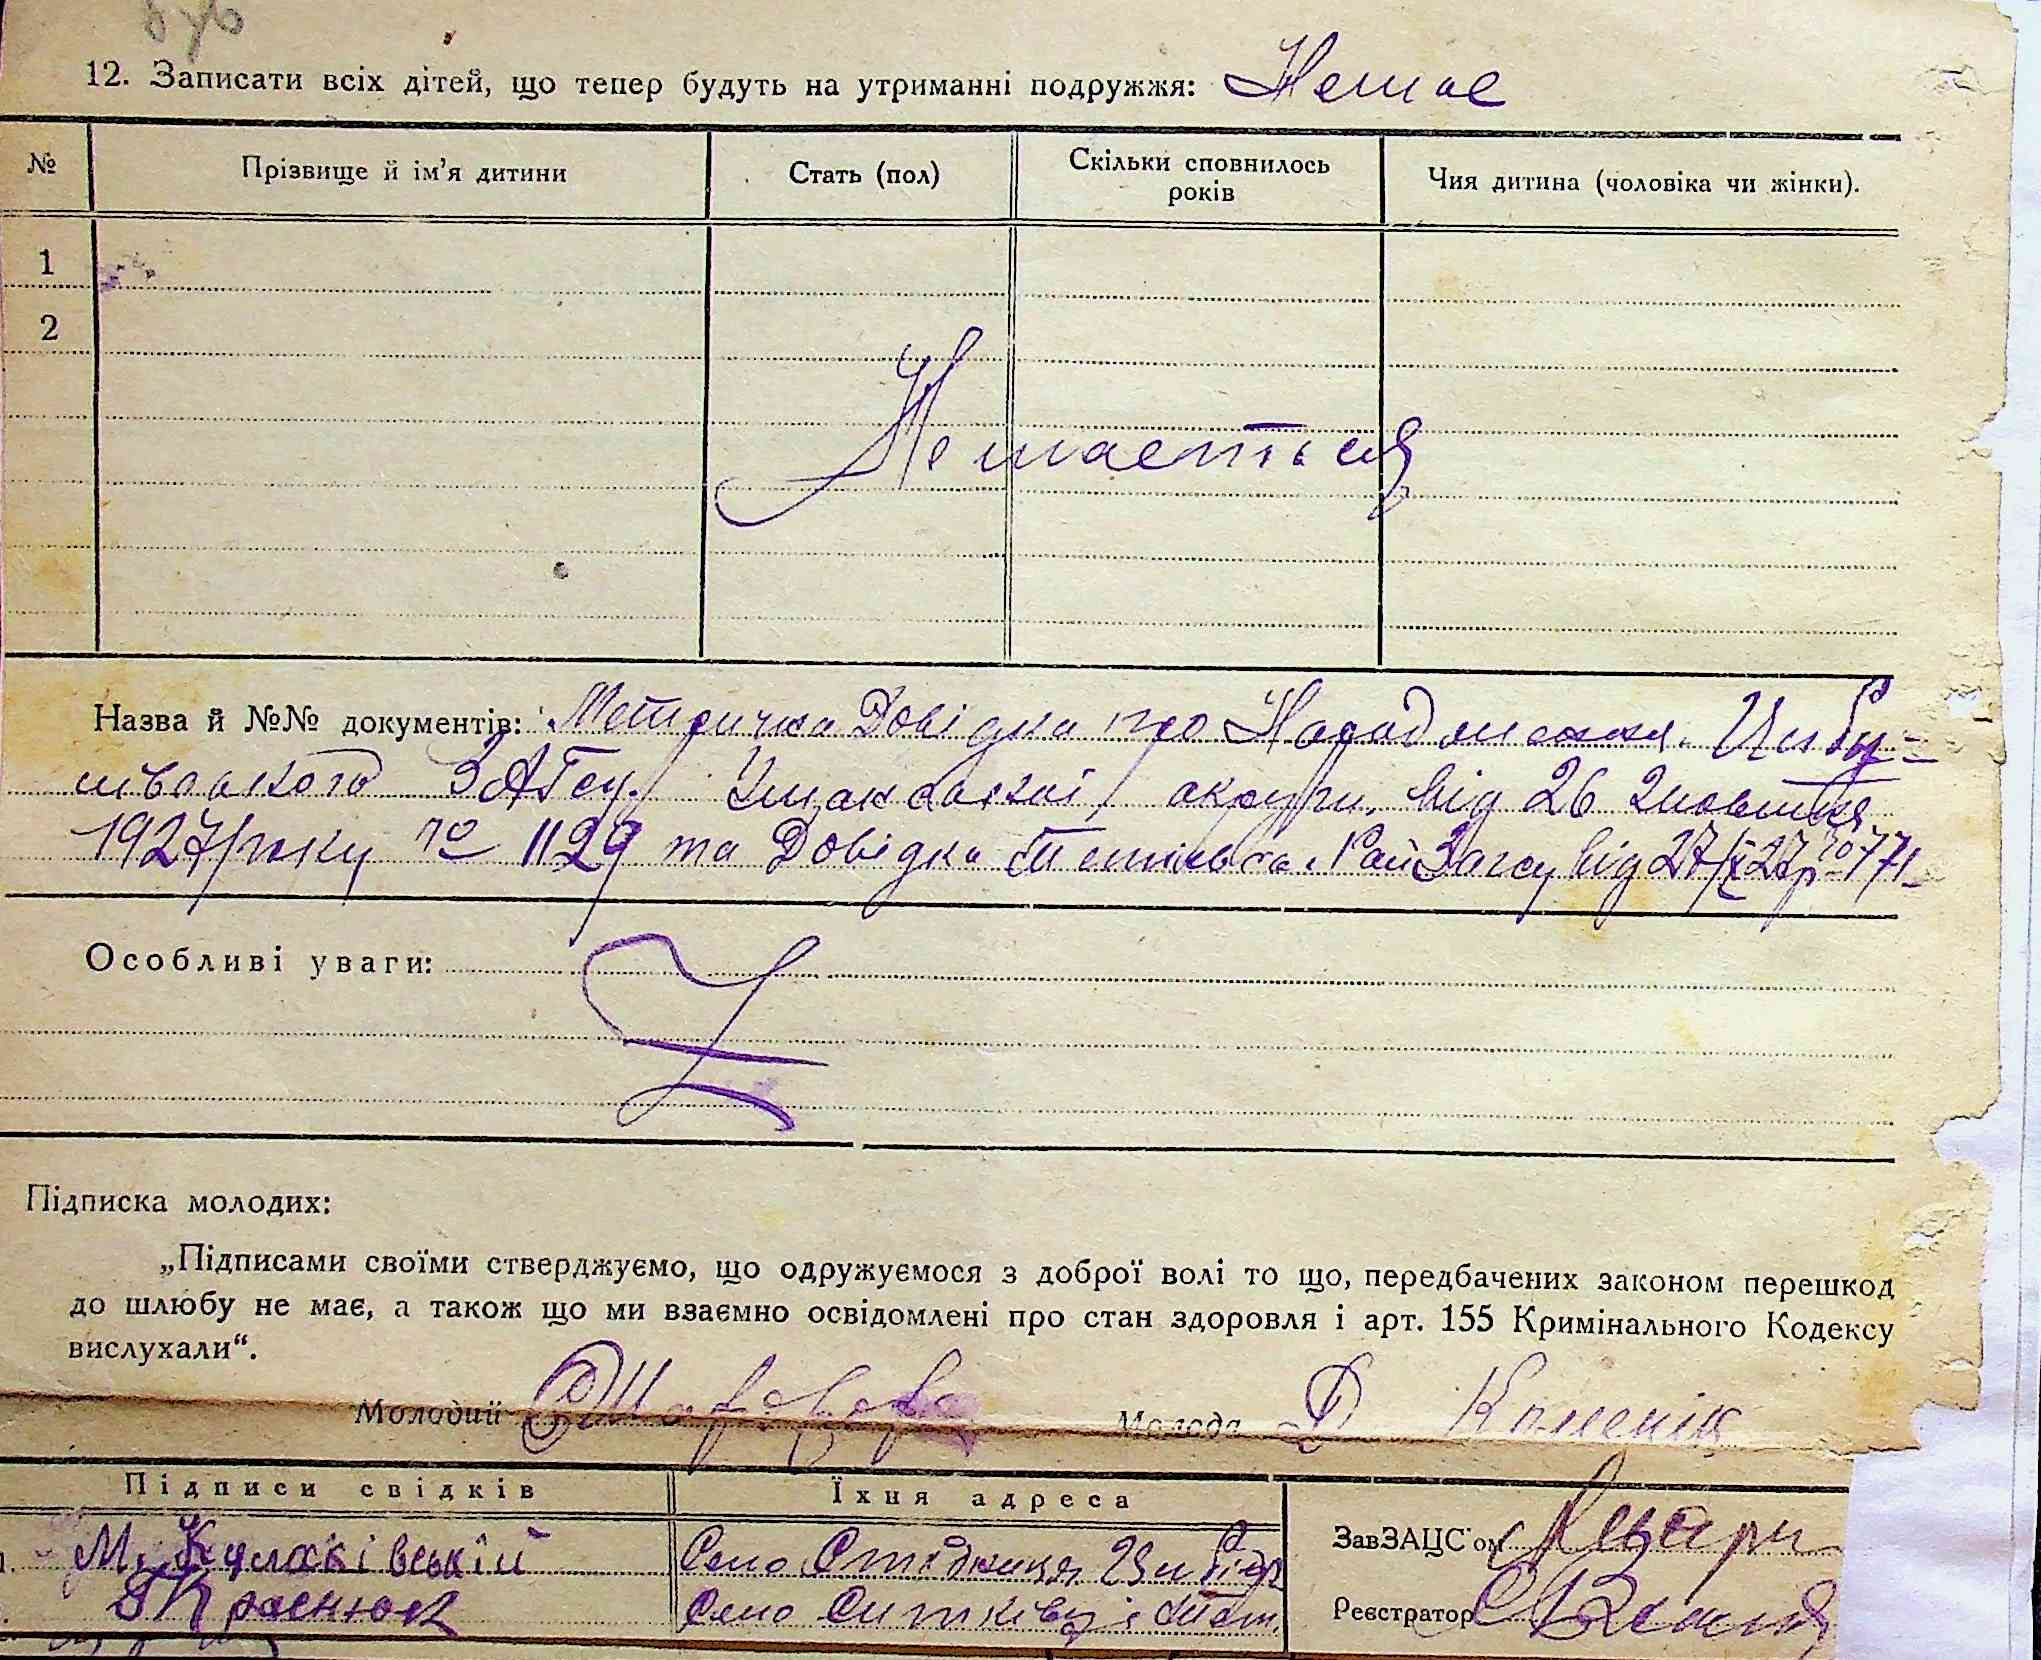 12. Записати всіх дітей, що тепер будуть на утриманні подружжя: Немає
№ Прізвище й ім'я дитини Стать (пол) Скільки сповнилось років Чия дитина (чоловіка чи жінки).
1
2
Немається
Назва й №№ документів: Метрична Довідка про Народження Цибу-
лівського ЗАГСу Уманської округи, від 26 жовтня
1927 року № 1129 та Довідка РайЗагсу від 27/X 27 р № 771
Особливі уваги:
Підписка молодих:
„Підписами своїми стверджуємо, що одружуємося з доброї волі то що, передбачених законом перешкод
до шлюбу не має, а також що ми взаємно освідомлені про стан здоровля і арт. 155 Кримінального Кодексу
вислухали“.
Молодий Молода Д
Підписи свідків Їхня адреса
М. Село ЗавЗАЦС'ом
Село Ситківці Реєстратор